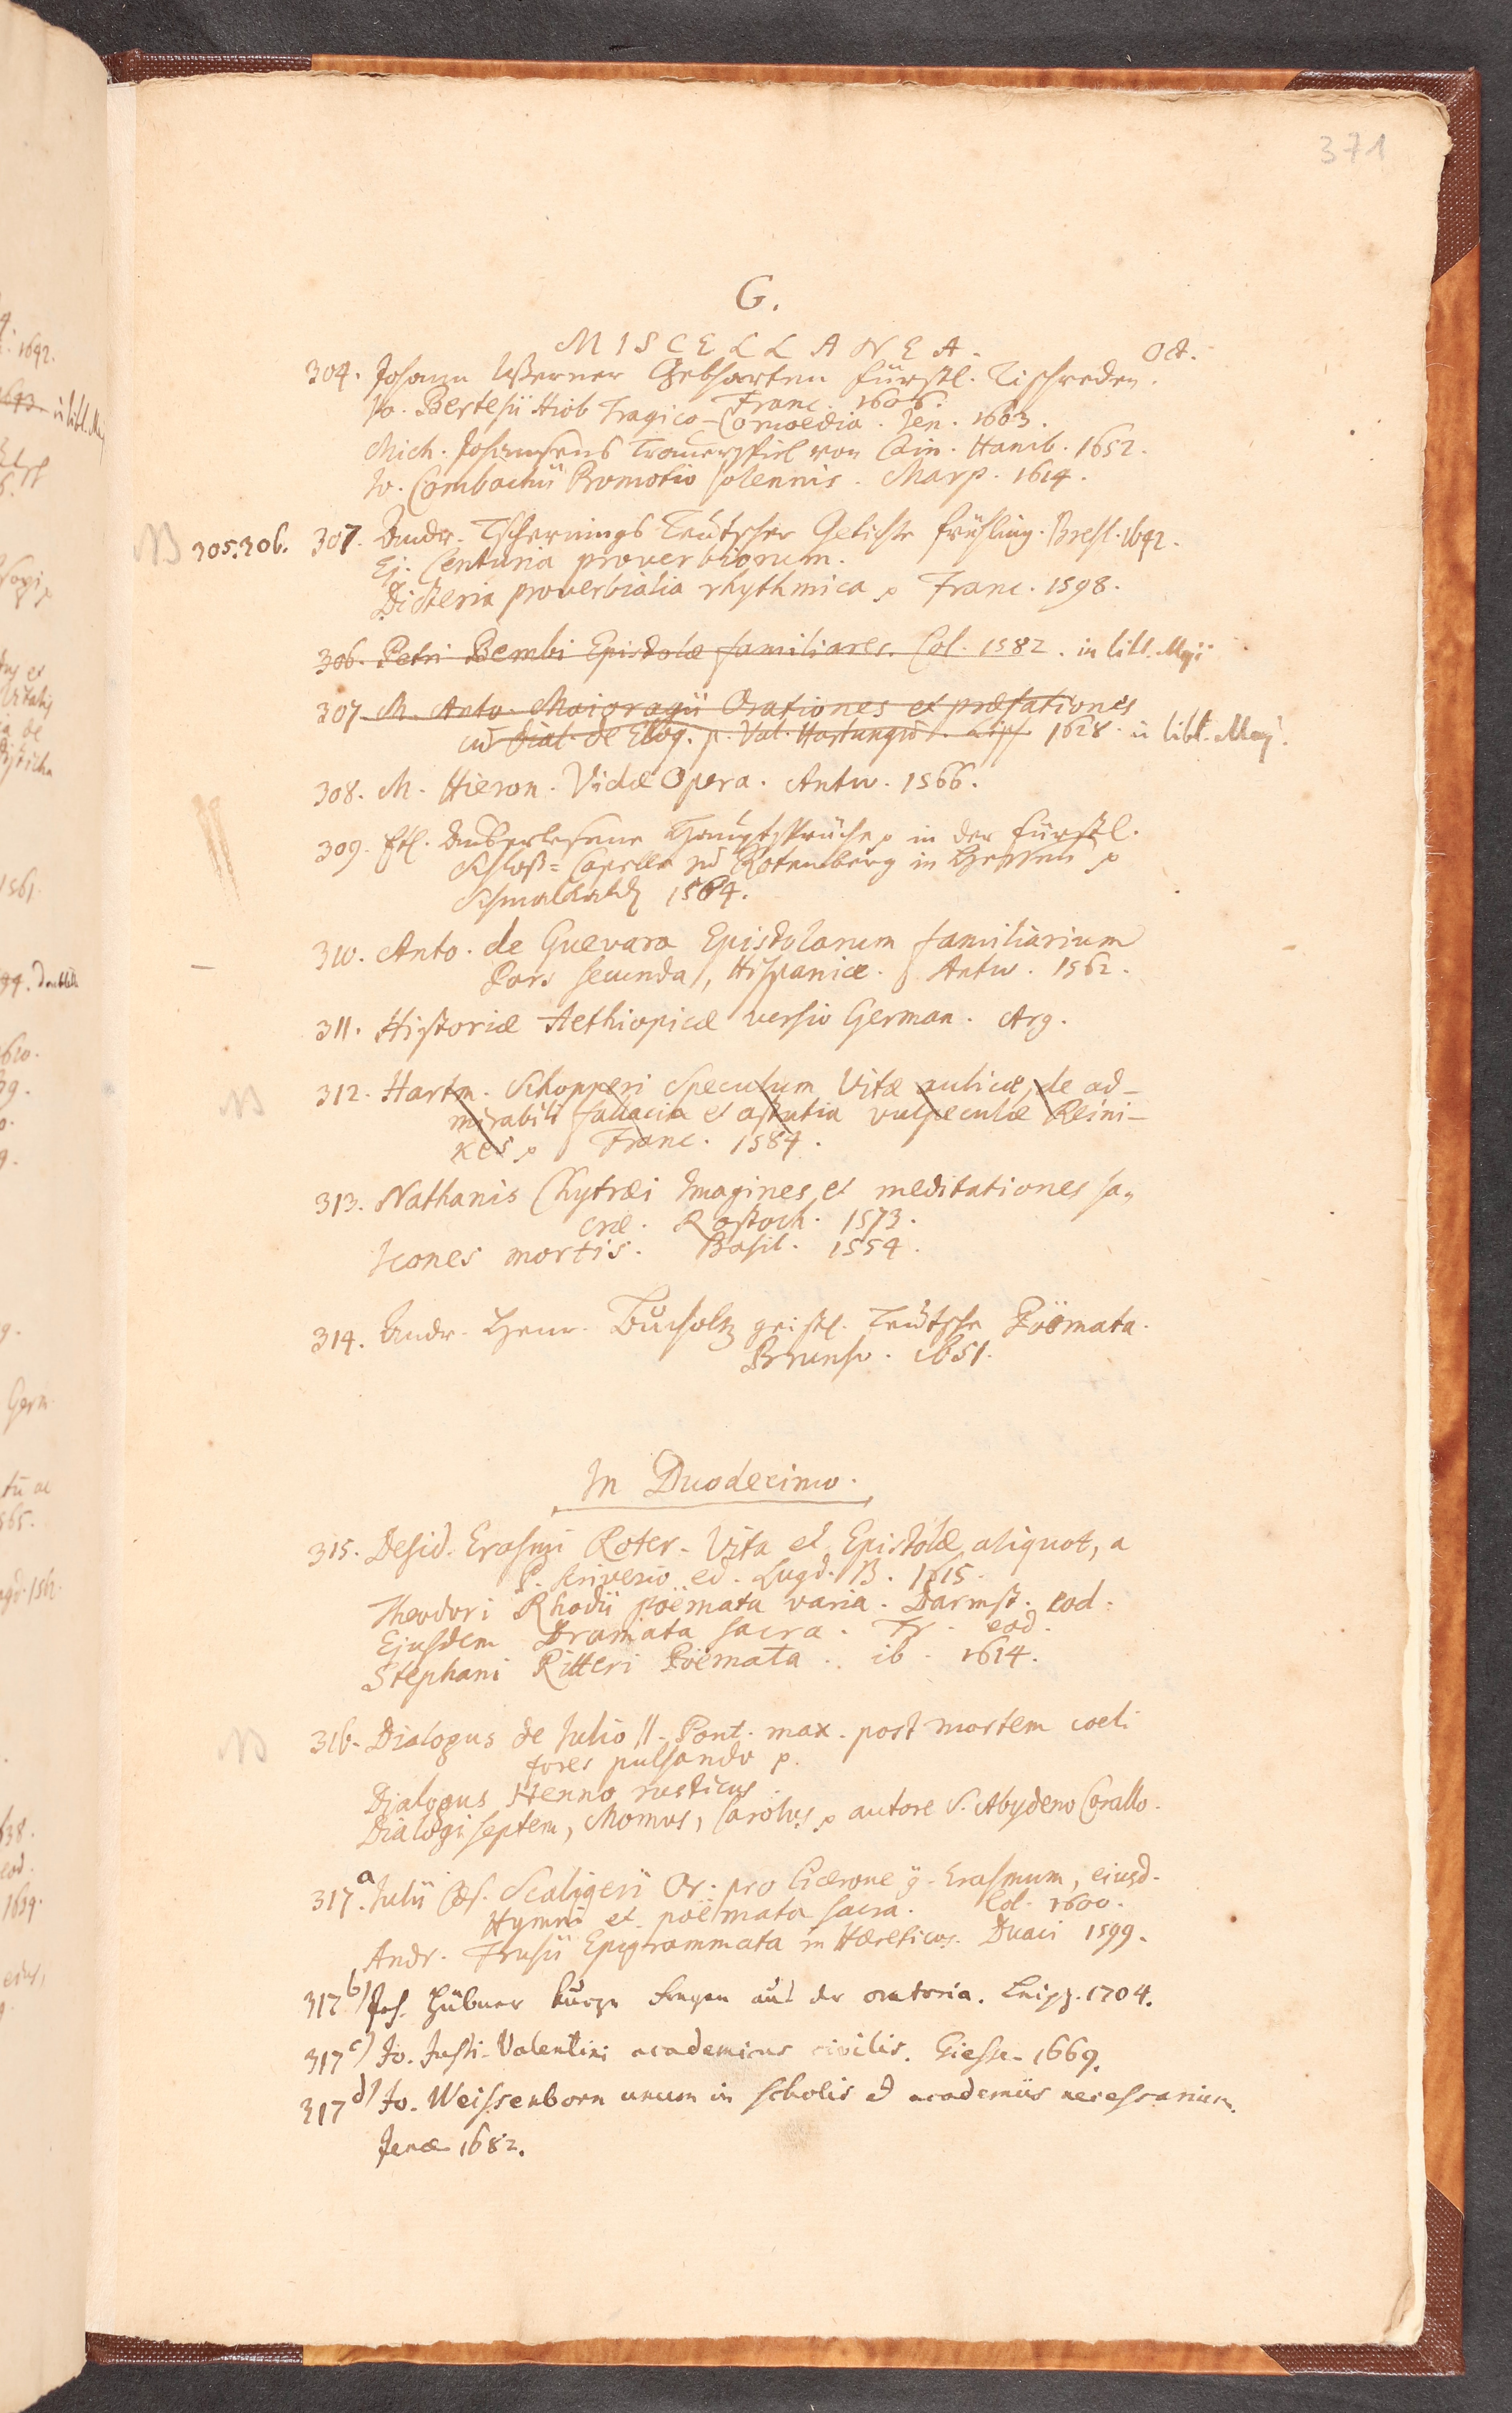 371
G.
MISCELLANEA. Oct.
304. Johann Werner Gebharten fürstl. Tischreden.
Franc. 1606.
Jo. Bertesii Hiob Tragico-Comoedia. Jen. 1603.
Mich. Johansens Trauerspiel von Cain. Hamb. 1652.
Jo. Combachii Promotio solennis. Marp. 1614.
NB 305.306. 307. Andr. Tschernings Teutscher Getichte frühling. Bresl. 1642.
Ej. Centuria proverbiorum.
Dicteria proverbialia rhythmica p Franc. 1598.
306. Petri Bembi Epistolæ familiares. Col. 1582. in libl. Maji
307. M. Anto. Maioragii Orationes et præfationes
cū Dial. de Eloq. p. Val. Hartungū. Lips. 1628. in libl. Maj.
308. M. Hieron. Vidæ Opera. Antw. 1566.
309. Etl. auserlesene Hauptsprüche p in der fürstl.
Schloß-Capelle zu Rotenberg in Hessen p
Schmalkald 1564.
310. Anto. de Guevara Epistolarum familiarium
Pars secunda, Hispanice. Antw. 1562.
311. Historiæ Aethiopicæ versio German. Arg.
NB 312. Hartm. Schopperi Speculum Vitæ aulicæ, de ad-
mirabili fallacia et astutia vulpeculæ Reini-
kes p Franc. 1584.
313. Nathanis Chytræi Imagines et meditationes sa-
cræ. Rostoch. 1573.
Icones mortis. Basil. 1554.
314. Andr. Henr. Bucholtz geistl. Teutsche Poëmata.
Brunsv. 1651.
In Duodecimo.
315. Desid. Erasmi Roter. Vita et Epistolæ aliquot, a
P. Scriverio ed. Lugd. B. 1615.
Theodori Rhodii poëmata varia. Darmst. eod.
Ejusdem Dramata sacra. Fr. eod.
Stephani Ritteri Poëmata. ib. 1614.
NB 316. Dialogus de Julio II. Pont. max. post mortem coeli
fores pulsando p.
Dialogus Henno rusticus.
Dialogi septem, Momus, Carolus p autore S. Abydeno Corallo.
317.a Julii Cæs. Scaligeri Or. pro Cicerone g. Erasmum, eiusd.
Hymni et poëmata sacra. Col. 1600.
Andr. Frusii Epigrammata in Hæreticos. Duaci 1599.
317 b) Joh. Hübner kurze Fragen aus der oratoria. Leipz. 1704.
317 c) Jo. Justi Valentini academicus civilis. Giess. 1669.
317 d) Jo. Weissenborn unum in scholis & academiis necessarium.
Jenæ 1682.